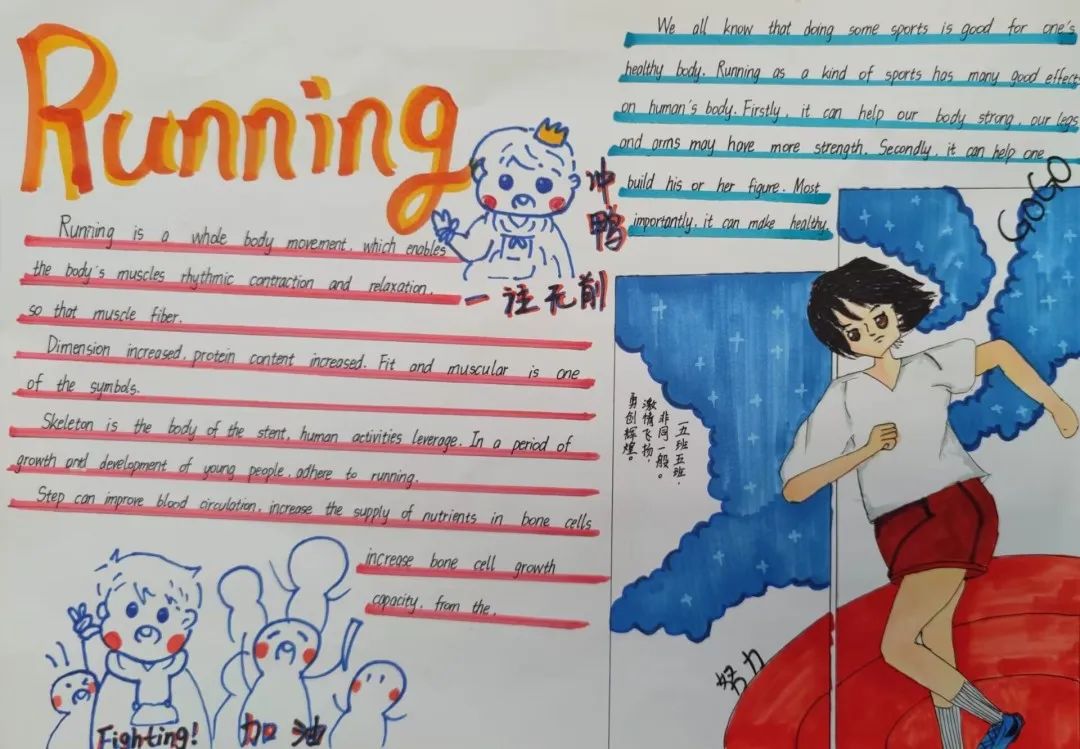 Running
Running is a whole body movement, which enables
the body's muscles rhythmic contraction and relaxation,
so that muscle fiber.
Dimension increased, protein content increased. Fit and muscular is one
of the symbols.
Skeleton is the body of the stent, human activities leverage. In a period of
growth and development of young people, adhere to running.
Step can improve blood circulation, increase the supply of nutrients in bone cells
increase bone cell growth
capacity, from the.
冲鸭
一往无前
Fighting!
加油
We all know that doing some sports is good for one's
healthy body. Running as a kind of sports has many good effect
on human's body. Firstly, it can help our body strong, our legs
and arms may have more strength. Secondly, it can help one
build his or her figure. Most
importantly, it can make healthy.
GOGO
一五班五班，
非同一般。
激情飞扬，
勇创辉煌。
努力